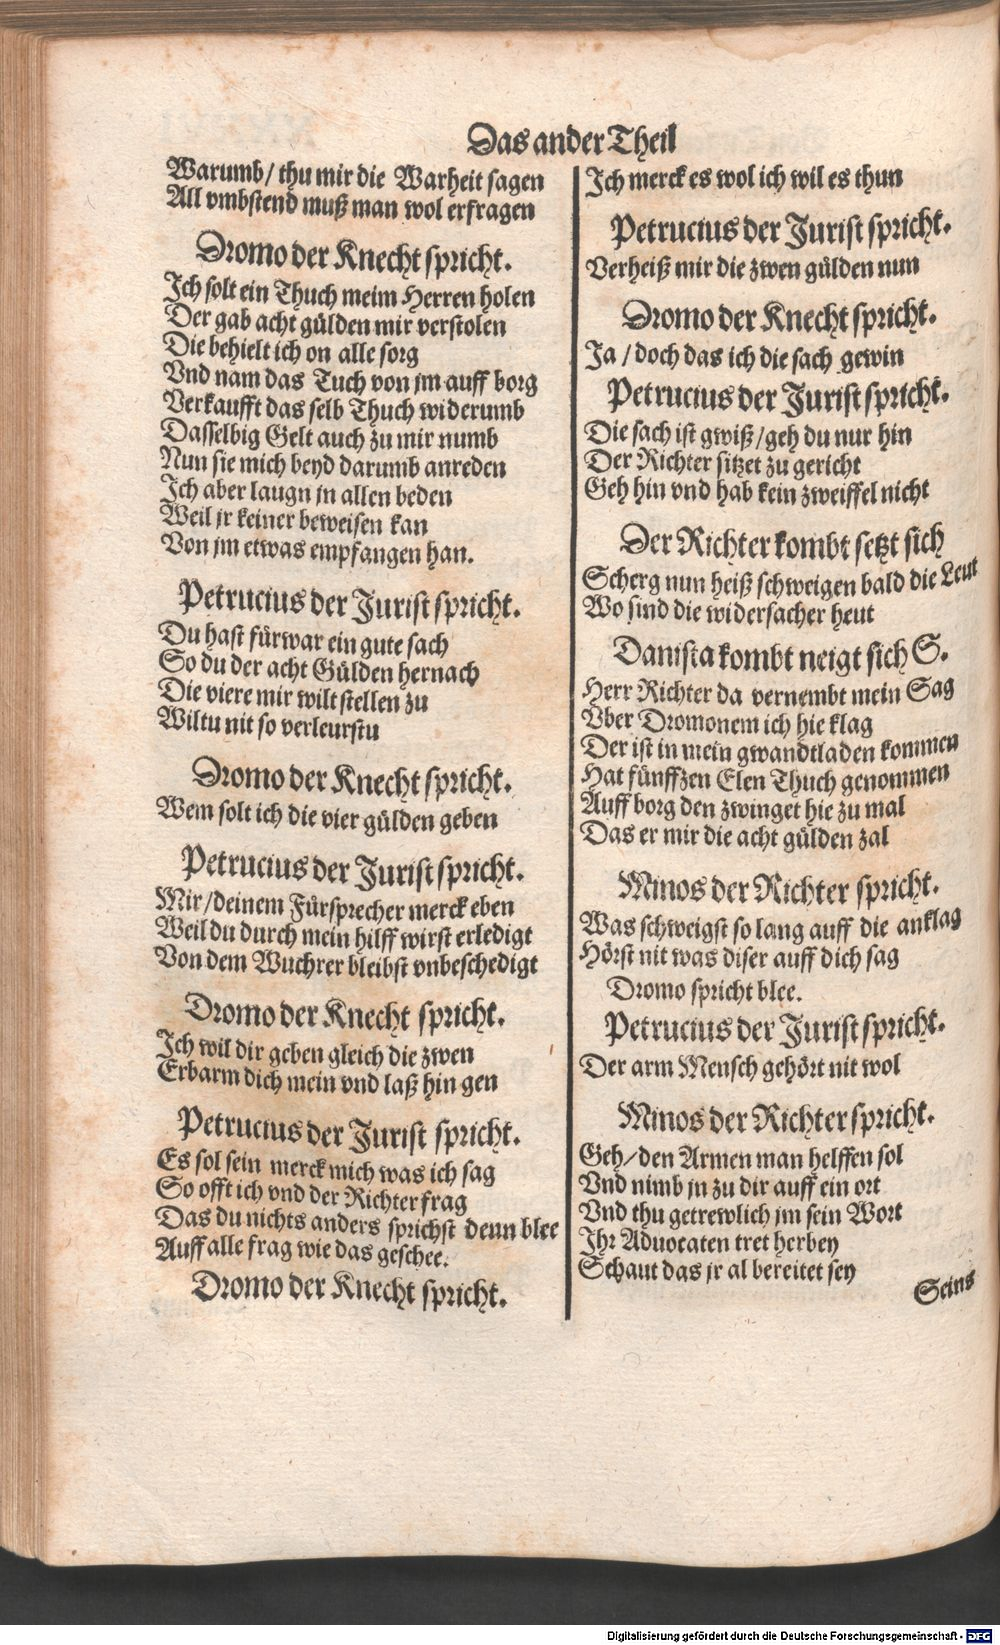 Das ander Theil
Warumb / thu mir die Warheit sagen
All vmbstend muß man wol erfragen
Dromo der Knecht spricht.
Ich solt ein Thuch meim Herren holen
Der gab acht gülden mir verstolen
Die behielt ich on alle sorg
Vnd nam das Tuch von jm auff borg
Verkaufft das selb Thuch widerumb
Dasselbig Gelt auch zu mir numb
Nun sie mich beyd darumb anreden
Ich aber laugn jn allen beden
Weil jr keiner beweisen kan
Von jm etwas empfangen han.
Petrucius der Jurist spricht.
Du hast fürwar ein gute sach
So du der acht Gülden hernach
Die viere mir wilt stellen zu
Wiltu nit so verleurstu
Dromo der Knecht spricht.
Wem solt ich die vier gülden geben
Petrucius der Jurist spricht.
Mir / deinem Fürsprecher merck eben
Weil du durch mein hilff wirst erledigt
Von dem Wuchrer bleibst vnbeschedigt
Dromo der Knecht spricht.
Ich wil dir geben gleich die zwen
Erbarm dich mein vnd laß hin gen
Petrucius der Jurist spricht.
Es sol sein merck mich was ich sag
So offt ich vnd der Richter frag
Das du nichts anders sprichst denn blee
Auff alle frag wie das geschee.
Dromo der Knecht spricht.
Ich merck es wol ich wil es thun
Petrucius der Jurist spricht.
Verheiß mir die zwen gülden nun
Dromo der Knecht spricht.
Ja / doch das ich die sach gewin
Petrucius der Jurist spricht.
Die sach ist gwiß / geh du nur hin
Der Richter sitzet zu gericht
Geh hin vnd hab kein zweiffel nicht
Der Richter kombt setzt sich
Scherg nun heiß schweigen bald die Leut
Wo sind die widersacher heut
Danista kombt neigt sich S.
Herr Richter da vernembt mein Sag
Vber Dromonem ich hie klag
Der ist in mein gwandtladen kommen
Hat fünffzen Elen Thuch genommen
Auff borg den zwinget hie zu mal
Das er mir die acht gülden zal
Minos der Richter spricht.
Was schweigst so lang auff die anklag
Hörst nit was diser auff dich sag
Dromo spricht blee.
Petrucius der Jurist spricht.
Der arm Mensch gehört nit wol
Minos der Richter spricht.
Geh / den Armen man helffen sol
Vnd nimb jn zu dir auff ein ort
Vnd thu getrewlich jm sein Wort
Ihr Aduocaten tret herbey
Schaut das jr al bereitet sey
Seins
Digitalisierung gefördert durch die Deutsche Forschungsgemeinschaft - DFG